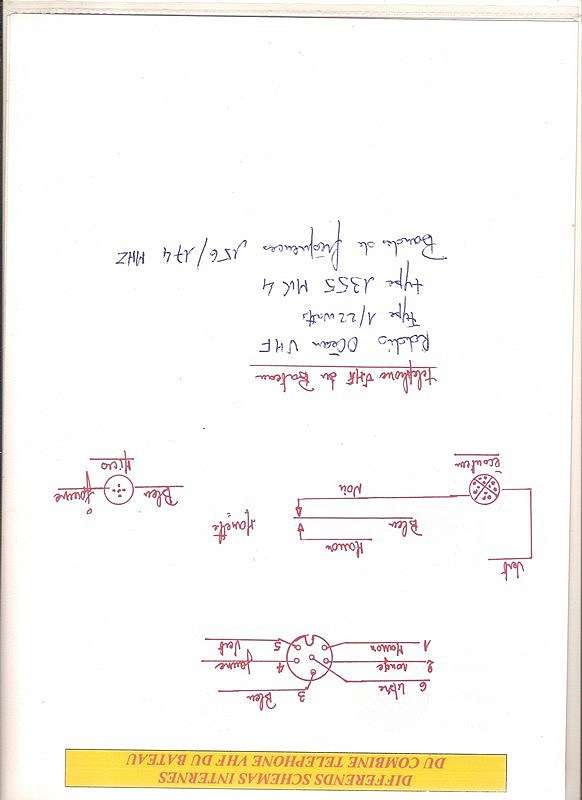 DIFFERENDS SCHEMAS INTERNES
DU COMBINE TELEPHONE VHF DU BATEAU
6 Libre
3 Bleu
2 rouge
4 Jaune
1 Marron
5 Vert
Vert
Marron
Bleu
Manette
Noir
écouteur
Bleu
Jaune
Micro
Telephone VHF du Bateau
Océan VHF
type 1/22 watts
type 1355 MK4
Bandes de fréquences 156/174 MHZ